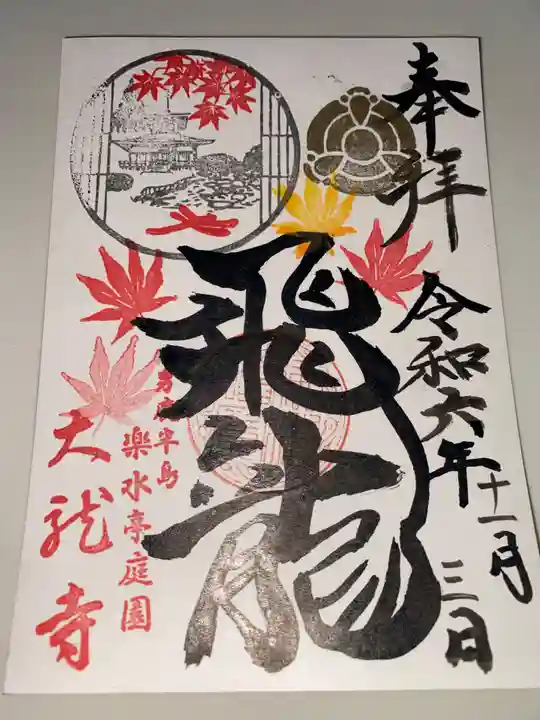 奉拝
令和六年十一月三日
飛龍
男鹿半島
楽水亭庭園
大龍寺